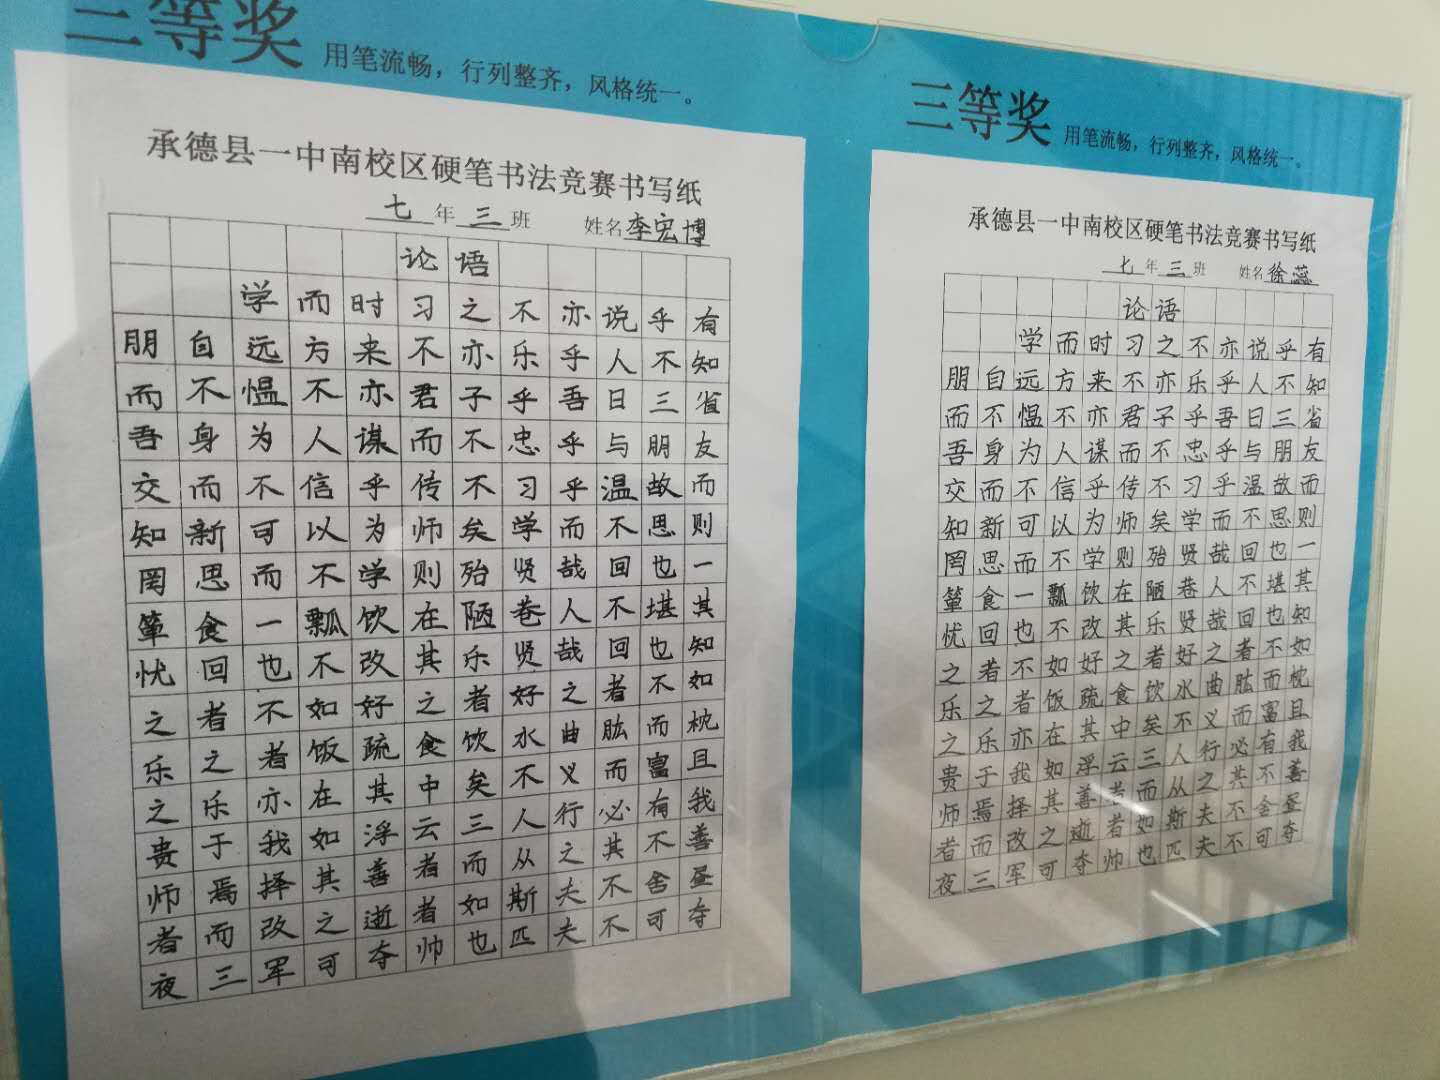 三等奖 用笔流畅，行列整齐，风格统一。
承德县一中南校区硬笔书法竞赛书写纸
七年三班 姓名李宏博
论语
学而时习之不亦说乎有
朋自远方来不亦乐乎人不知
而不愠不亦君子乎吾日三省
吾身为人谋而不忠乎与朋友
交而不信乎传不习乎温故而
知新可以为师矣学而不思则
罔思而不学则殆贤哉回也一
箪食一瓢饮在陋巷人不堪其
忧回也不改其乐贤哉回也知
之者不如好之者好之者不如
乐之者饭疏食饮水曲肱而枕
之乐亦在其中矣不义而富且
贵于我如浮云三人行必有我
师焉择其善者而从之其不善
者而改之逝者如斯夫不舍昼
夜三军可夺帅也匹夫不可夺
三等奖 用笔流畅，行列整齐，风格统一。
承德县一中南校区硬笔书法竞赛书写纸
七年三班 姓名徐蕊
论语
学而时习之不亦说乎有
朋自远方来不亦乐乎人不知
而不愠不亦君子乎吾日三省
吾身为人谋而不忠乎与朋友
交而不信乎传不习乎温故而
知新可以为师矣学而不思则
罔思而不学则殆贤哉回也一
箪食一瓢饮在陋巷人不堪其
忧回也不改其乐贤哉回也知
之者不如好之者好之者不如
乐之者饭疏食饮水曲肱而枕
之乐亦在其中矣不义而富且
贵于我如浮云三人行必有我
师焉择其善者而从之其不善
者而改之逝者如斯夫不舍昼
夜三军可夺帅也匹夫不可夺